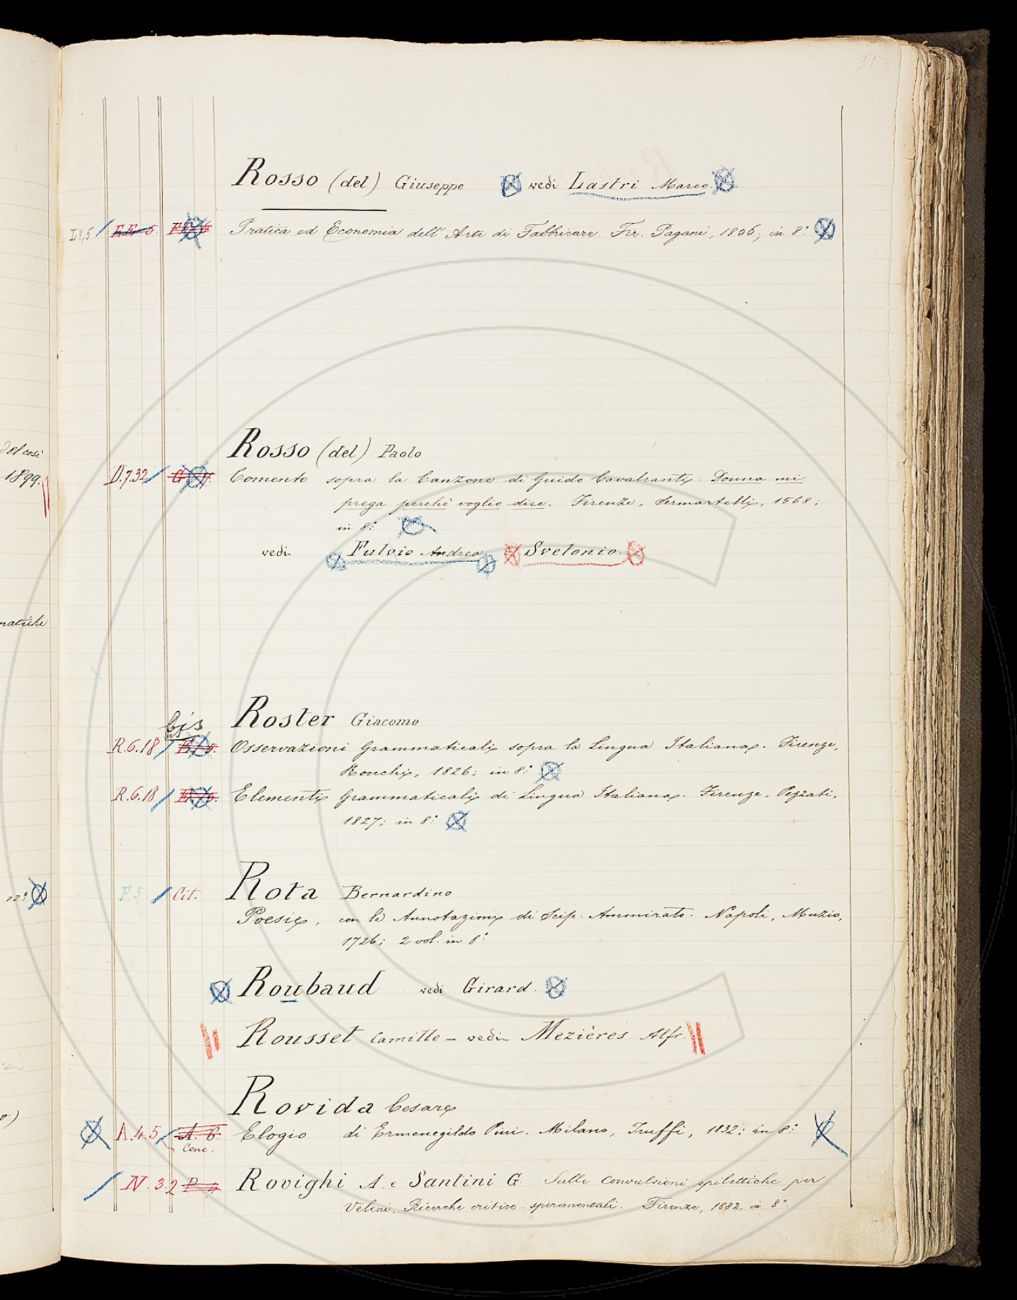 Rosso (del) Giuseppe vedi Lastri Marco
I.V,5 E.E. 5.
Pratica ed Economia dell' Arte di Fabbricare. Fir. Pagani, 1806; in 8.°
del così
1899.
Rosso (del) Paolo
D.7.32 Comento sopra la Canzone di Guido Cavalcanti: Donna mi
prega perchè voglio dire. Firenze, Sermartelli, 1568;
in 8.°
vedi Fulvio Andrea Svetonio.
matiche
Roster Giacomo
bis
R.6.18 Osservazioni grammaticali sopra la Lingua Italiana. Firenze,
Ronchi, 1826; in 8.°
R.6.18 Elementi grammaticali di Lingua Italiana. Firenze, Pezzati,
1827; in 8.°
12.° F. 5 Cit. Rota Bernardino
Poesie, con le Annotazioni di Scip. Ammirato. Napoli, Muzio,
1726; 2 vol. in 8.°
Roubaud vedi Girard.
Rousset Camille – vedi Mezières Alfr.
Rovida Cesare
A.4.5 A. 6. Elogio di Ermenegildo Pini. Milano, Truffi, 1832; in 8.°
Conc.
N. 3.2 Rovighi A. e Santini G. Sulle Convulsioni epilettiche per
Veleni. Ricerche critico-sperimentali. Firenze, 1882, in 8.°